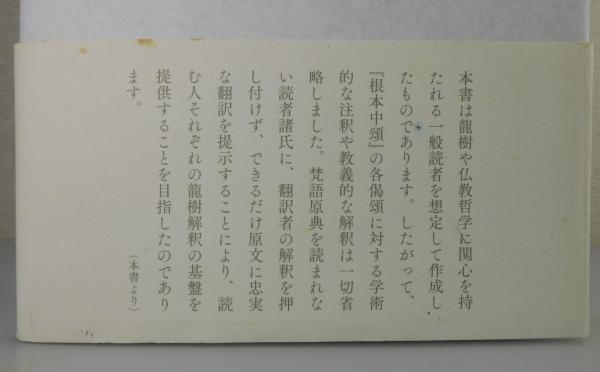 本書は龍樹や仏教哲学に関心を持
たれる一般読者を想定して作成し
たものであります。したがって、
『根本中頌』の各偈頌に対する学術
的な注釈や教義的な解釈は一切省
略しました。梵語原典を読まれな
い読者諸氏に、翻訳者の解釈を押
し付けず、できるだけ原文に忠実
な翻訳を提示することにより、読
む人それぞれの龍樹解釈の基盤を
提供することを目指したのであり
ます。
（本書より）